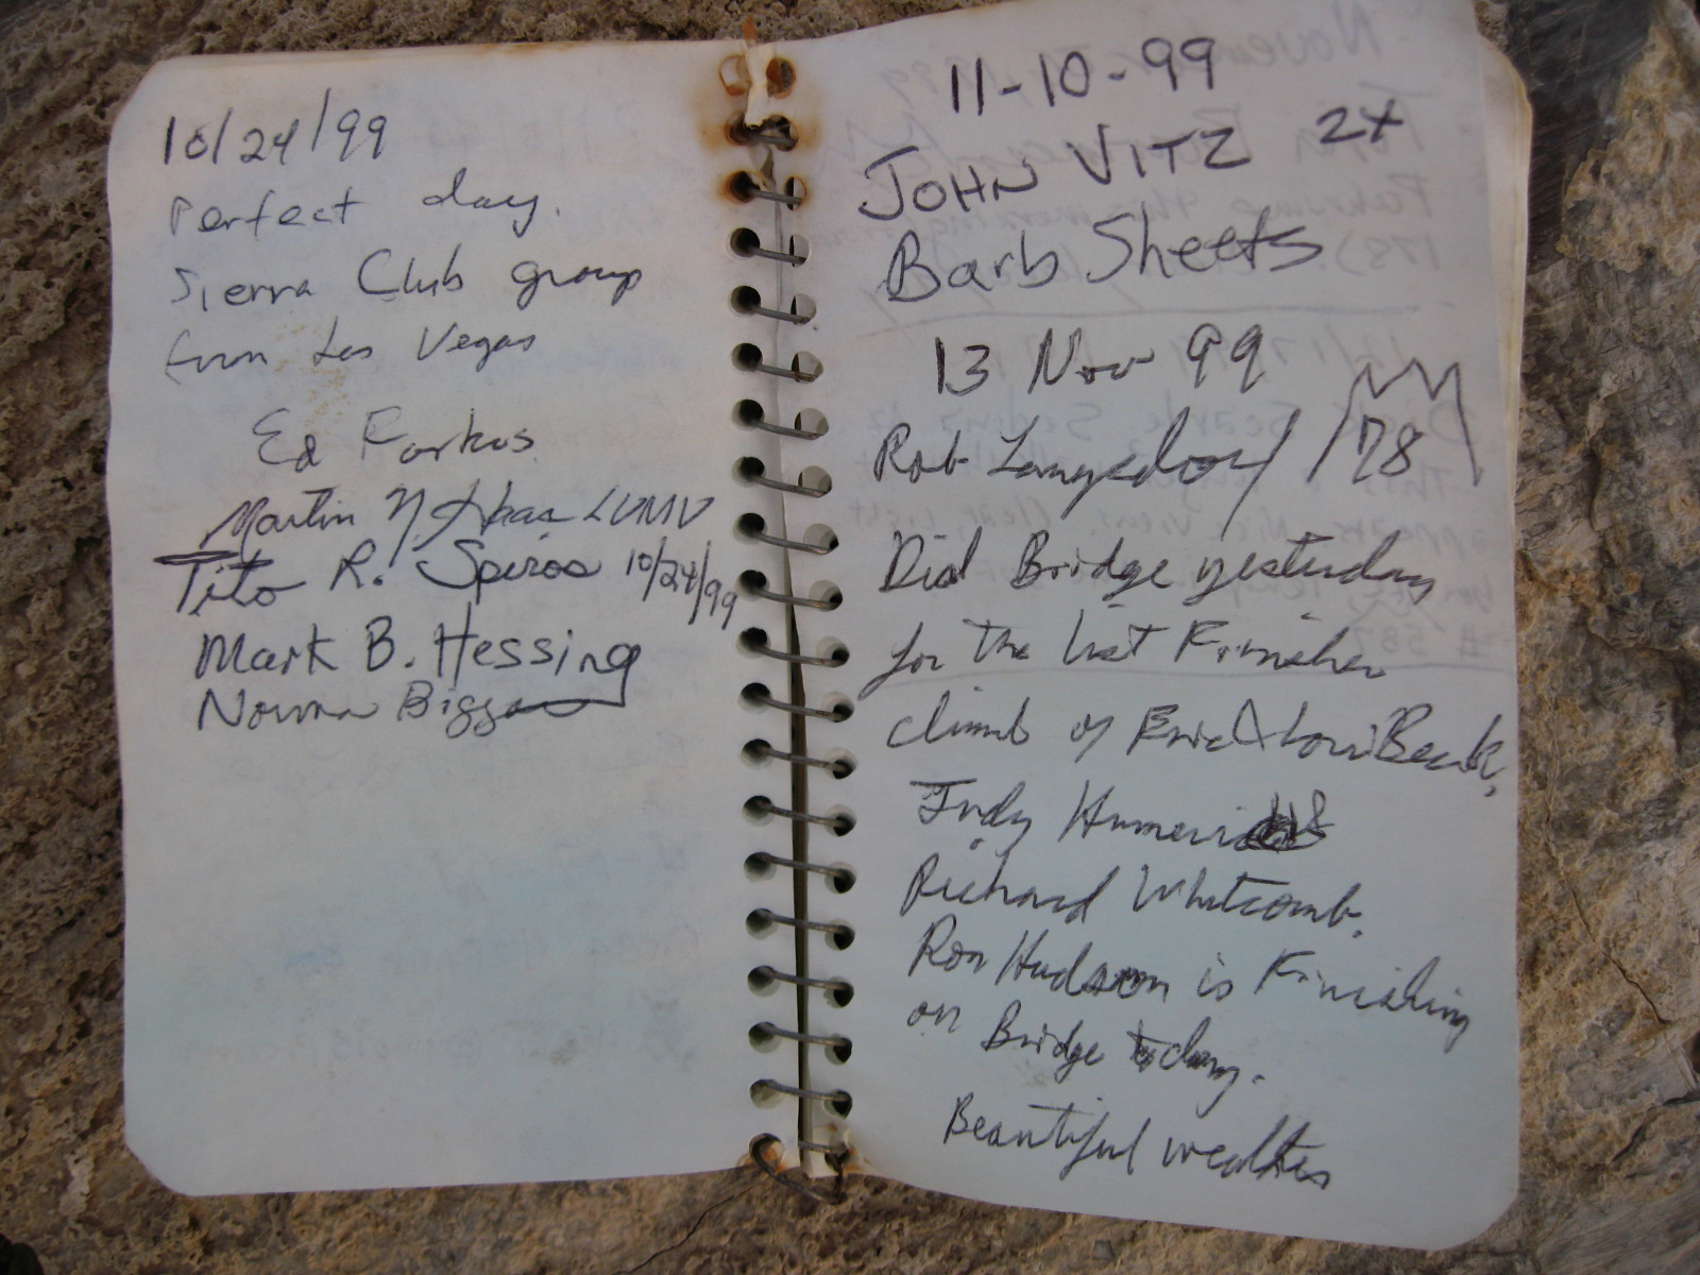 10/24/99
Perfect day.
Sierra Club group
from Las Vegas
Ed Forkos
Martin LVMV
Tito R. Spiros 10/24/99
Mark B. Hessing
Norma Biggar
11-10-99
JOHN VITZ 2X
Barb Sheets
13 Nov 99
Rob Langsdorf 178
Did Bridge yesterday
for the list Finisher
climb of Eric & Lori Beck,
Judy Hummerich
Richard Whitcomb.
Ron Hudson is Finishing
on Bridge today.
Beautiful weather